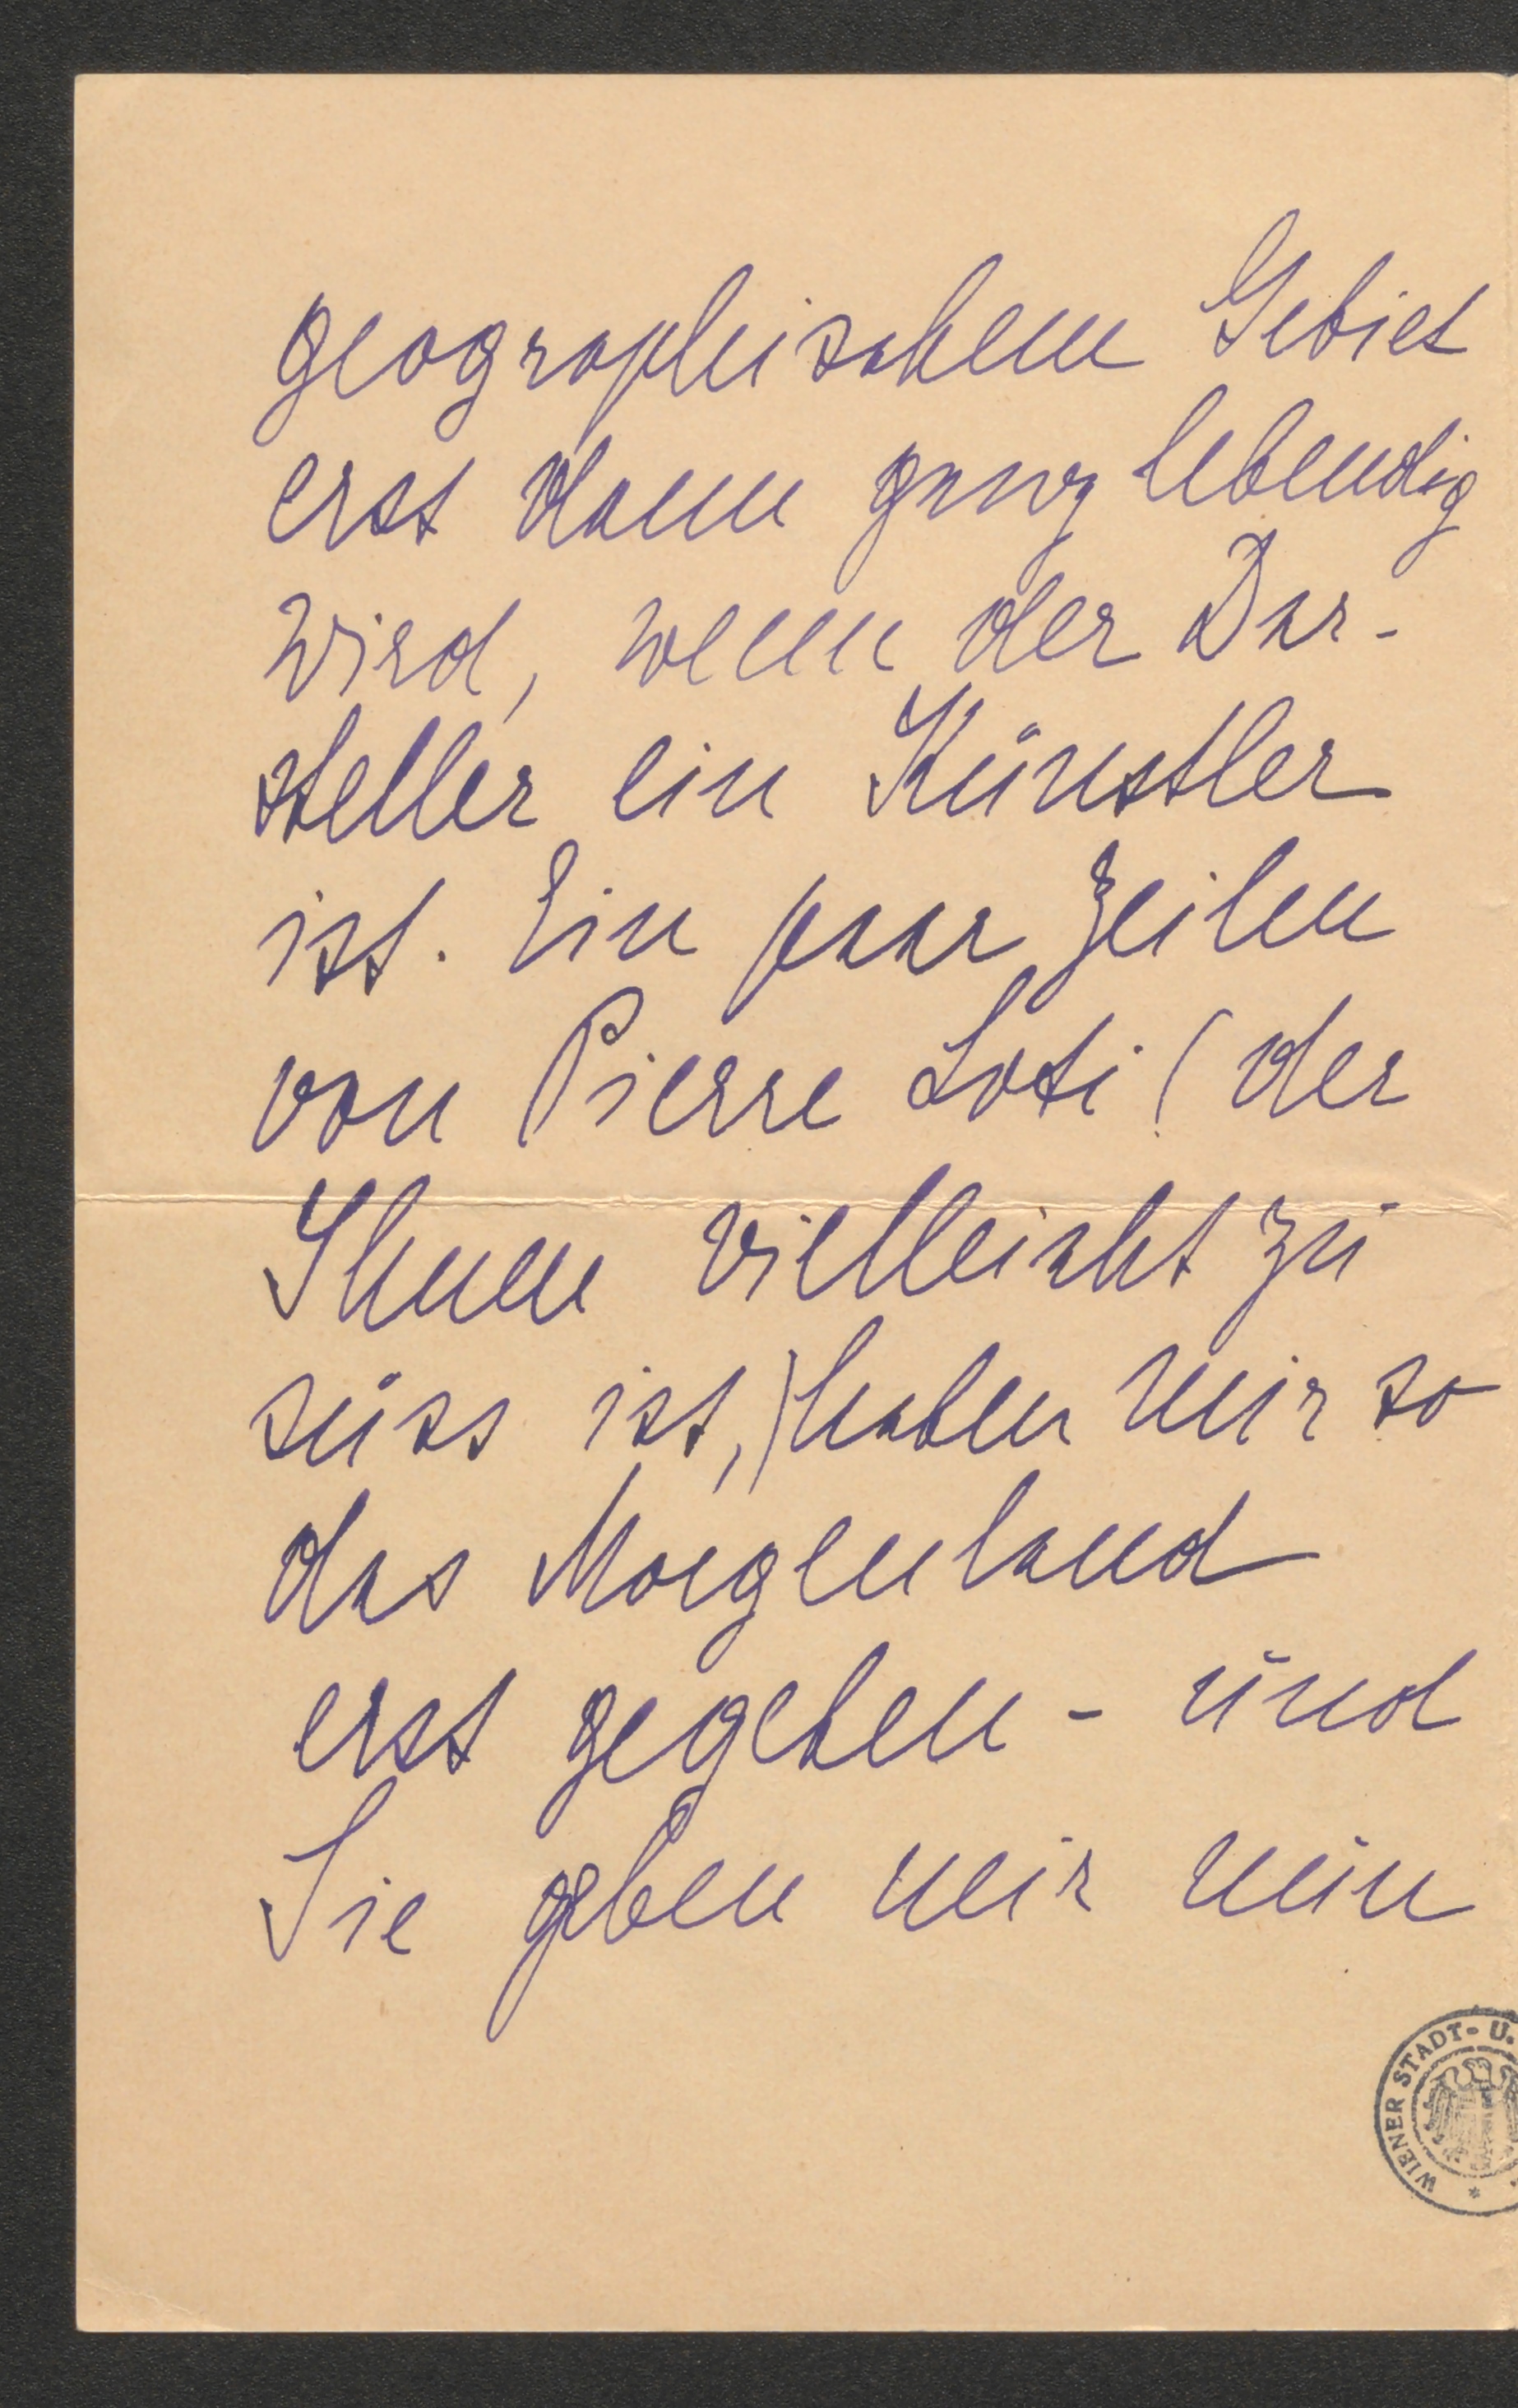 geographischem Gebiet
erst dann ganz lebendig
wird, wenn der Dar-
steller ein Künstler
ist. Ein paar Zeilen
von Pierre Loti (der
Ihnen vielleicht zu
süss ist,) haben mir so
das Morgenland
erst gegeben - und
Sie geben mir nun
WIENER STADT- U.